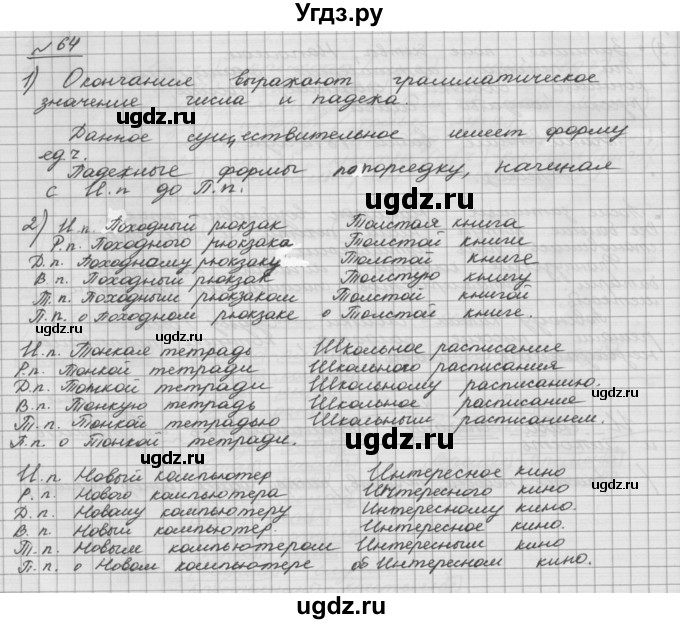 Угдз.ру
№ 64
1) Окончания выражают грамматическое
значение числа и падежа.
ugdz.ru
Данное существительное имеет форму
ед.ч.
Падежные формы по порядку, начиная
с И.п до П.п.
ugdz.ru
ugdz.ru
2) И.п. Походный рюкзак Толстая книга
Р.п. Походного рюкзака Толстой книги
Д.п. Походному рюкзаку Толстой книге
В.п. Походный рюкзак Толстую книгу
Т.п. Походным рюкзаком Толстой книгой
П.п. о Походном рюкзаке о Толстой книге.
ugdz.ru
ugdz.ru
И.п. Тонкая тетрадь Школьное расписание
Р.п. Тонкой тетради Школьного расписания
Д.п. Тонкой тетради Школьному расписанию.
В.п. Тонкую тетрадь Школьное расписание
Т.п. Тонкой тетрадью Школьным расписанием.
П.п. о Тонкой тетради.
ugdz.ru
ugdz.ru
И.п Новый компьютер Интересное кино
Р.п. Нового компьютера Интересного кино
Д.п. Новому компьютеру Интересному кино.
В.п. Новый компьютер Интересное кино.
Т.п. Новым компьютером Интересным кино
П.п. о Новом компьютере об Интересном кино.
ugdz.ru
ugdz.ru
ugdz.ru